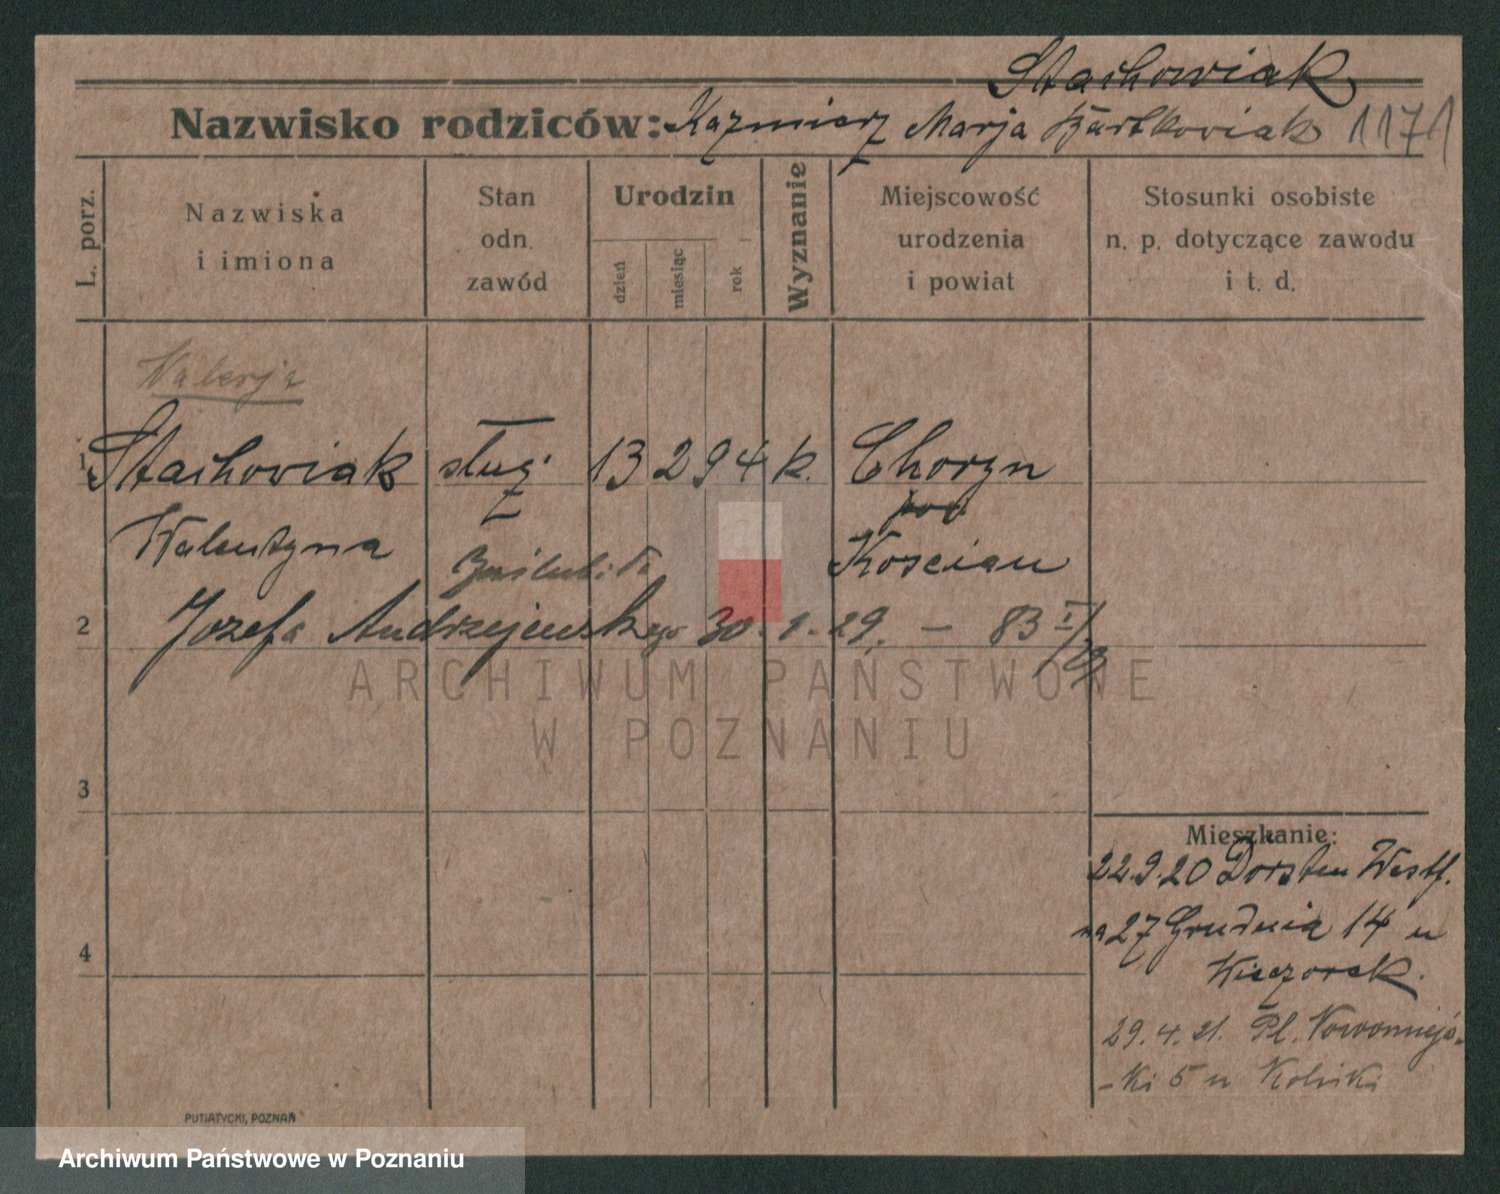 Stachowiak
Nazwisko rodziców: Kazmierz Marja Bartkowiak 1171
L. porz.
Nazwiska
i imiona
Stan
odn.
zawód
Urodzin
dzień
miesiąc
rok
Wyznanie
Miejscowość
urodzenia
i powiat
Stosunki osobiste
n. p. dotyczące zawodu
i t. d.
Walerja
1 Stachowiak służ. 13 2 94 k. Choryn
pow
Walentyna Koscian
zaślubiła
2 Jozefa Andrzejewskiego 30. 1. 29. — 83 I/29
ARCHIWUM PAŃSTWOWE
W POZNANIU
3
Mieszkanie:
22.9.20 Dorsten Westf.
na 27 Grudnia 14 u
4
Wieczorek.
29.4.21. Pl. Nowomiejs-
-ki 5 u
PUTIATYCKI, POZNAŃ
Archiwum Państwowe w Poznaniu